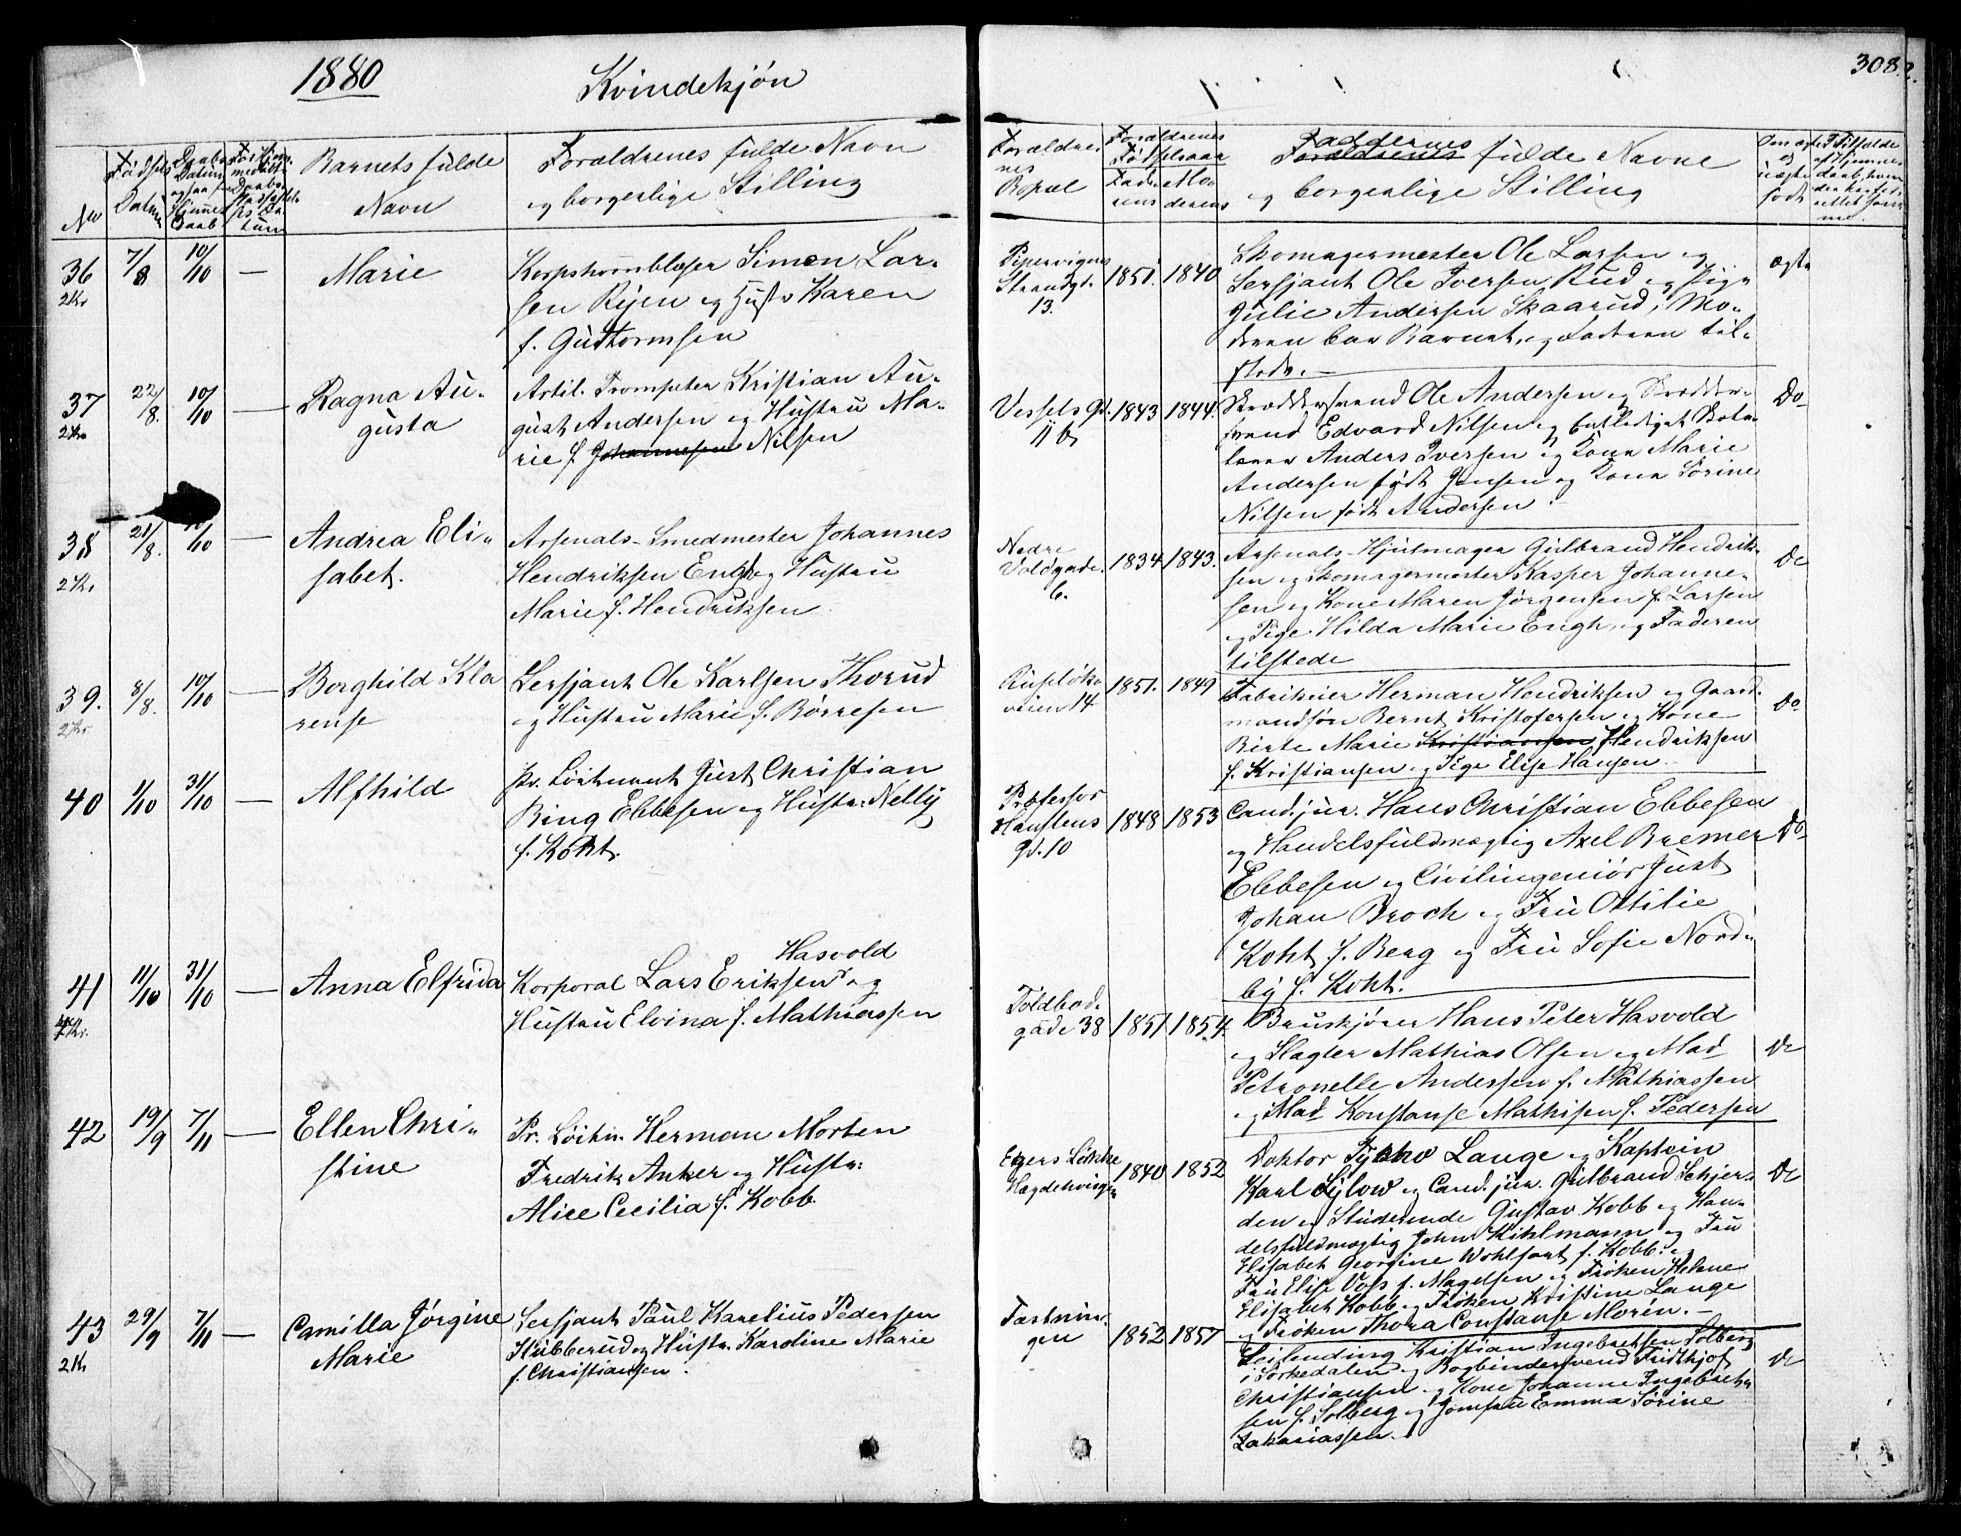 1880
Kvindekjøn
308
No
Fødsels Datum
Barnets fulde
Navn
Forældrenes fulde Navn
og borgerlige Stilling
Forældrenes
Bopæl
Forældrenes
Fødselsaar
Faderens
Moderens
Faddernes
Forældrenes fulde Navne
og borgerlige Stilling
36
2 Kr
7/8
10/10
—
Marie
Korpshornblæser Simon Lar-
sen Rijen og Hustr Karen
f. Guttormsen
Pipervigens
Strandgd.
13.
1851.
1840
Skomagermester Ole Larsen og
Sersjant Ole Iversen Rud og Pige
Julie Andersen Skaarud; Mo-
deren bar Barnet, og Faderen til-
stede. —
ægte
37
2 Kr
22/8.
10/10
—
Ragna Au-
gusta
Artil. Trompeter Kristian Au-
gust Andersen og Hustru Ma-
rie f. Johannesen Nilsen
Vessels Gd.
11 b
1843
1844.
Skræddersvend Ole Andersen og Skrædder-
svend Edvard Nilsen og
Anders Iversen og Kone Marie
Andersen født Jensen og Kone Sørine
Nilsen født Andersen.
Do
38
2 Kr
21/8.
10/10
—
Andrea Eli-
sabet.
Arsenals-Smedmester Johannes
Hendriksen Engh og Hustru
Marie f. Hendriksen
Nedre
Voldgade.
6.
1834
1843.
Arsenals-Hjulmager Gulbrand Hendrik-
sen og Skomagermester Kasper Johanne-
sen og Kone Maren Jørgensen f. Larsen
og Pige Hilda Marie Engh, og Faderen
tilstede
Do
39.
2 Kr
8/8.
10/10
—
Borghild Kla
rense
Sersjant Ole Karlsen Thorud
og Hustru Marie f. Børresen
Ruseløk-
veien 14
1851.
1849
Fabrikeier Herman Hendriksen og Gaard-
mandsøn Bernt Kristofersen og Kone
Birte Marie Kristiansen Hendriksen
f. Kristiansen og Pige Elise Hansen.
Do
40
1/10
31/10
—
Alfhild
Pr. Løitnant Just Christian
Ring Ebbesen og Hustr. Nelly
f. Koht.
Professor
Hanstens
Gd. 10
1848
1853
Cand. jur. Hans Christian Ebbesen
og Handelsfuldmægtig Axel Bremer
Ebbesen og Civilingeniör Just
Johan Broch og Fru Ottilie
Koht f. Berg og Fru Sofie Nord-
by f. Koht.
Do
41
11/10
31/10
—
Anna Elfrida
Hasvold
Korporal Lars Eriksen og
Hustru Elvina f. Mathiassen
Toldbod-
gade 38
1851
1854.
Bruskjører Hans Peter Hasvold
og Slagter Mathias Olsen og Mad
Petronelle Andersen f. Mathiassen
og Mad Konstanse Mathisen f. Pedersen
Do
42
19/9
7/11
—
Ellen Chri-
stine
Pr. Løitn. Herman Morten
Fredrik Anker og Hustr:
Alice Cecilia f. Kobb
Egers Løkke
Hægdehougen
1840
1852
Doktor Tycho Lange og Kaptein
Karl Sylow og Cand. jur. Gulbrand Schjer-
den og Studerende Gustav Kobb og Han-
delsfuldmægtig John Kihlmann og Fru
Elisabet Georgine Wohlfart f. Kobb: og
Fru Elise Vols f. Magelsen og Frøken Helene
Elisabet Kobb og Frøken Kristine Lange
og Frøken Thora Constanse Morén. —
Do
43
2 Kr
29/9
7/11
—
Camilla Jørgine
Marie
Sersjant Paul Karelius Pedersen
Stubberud og Hustr. Karoline Marie
f. Christiansen.
Fæstnin-
gen
1852
1857
Leilending Kristian Ingebretsen Solberg
i Sørkedalen og Bogbindersvend Fridtjof
Christiansen og Kone Johanne Ingebret-
sen f. Solberg og Jomfru Emma Sørine
Zakariassen.
Do